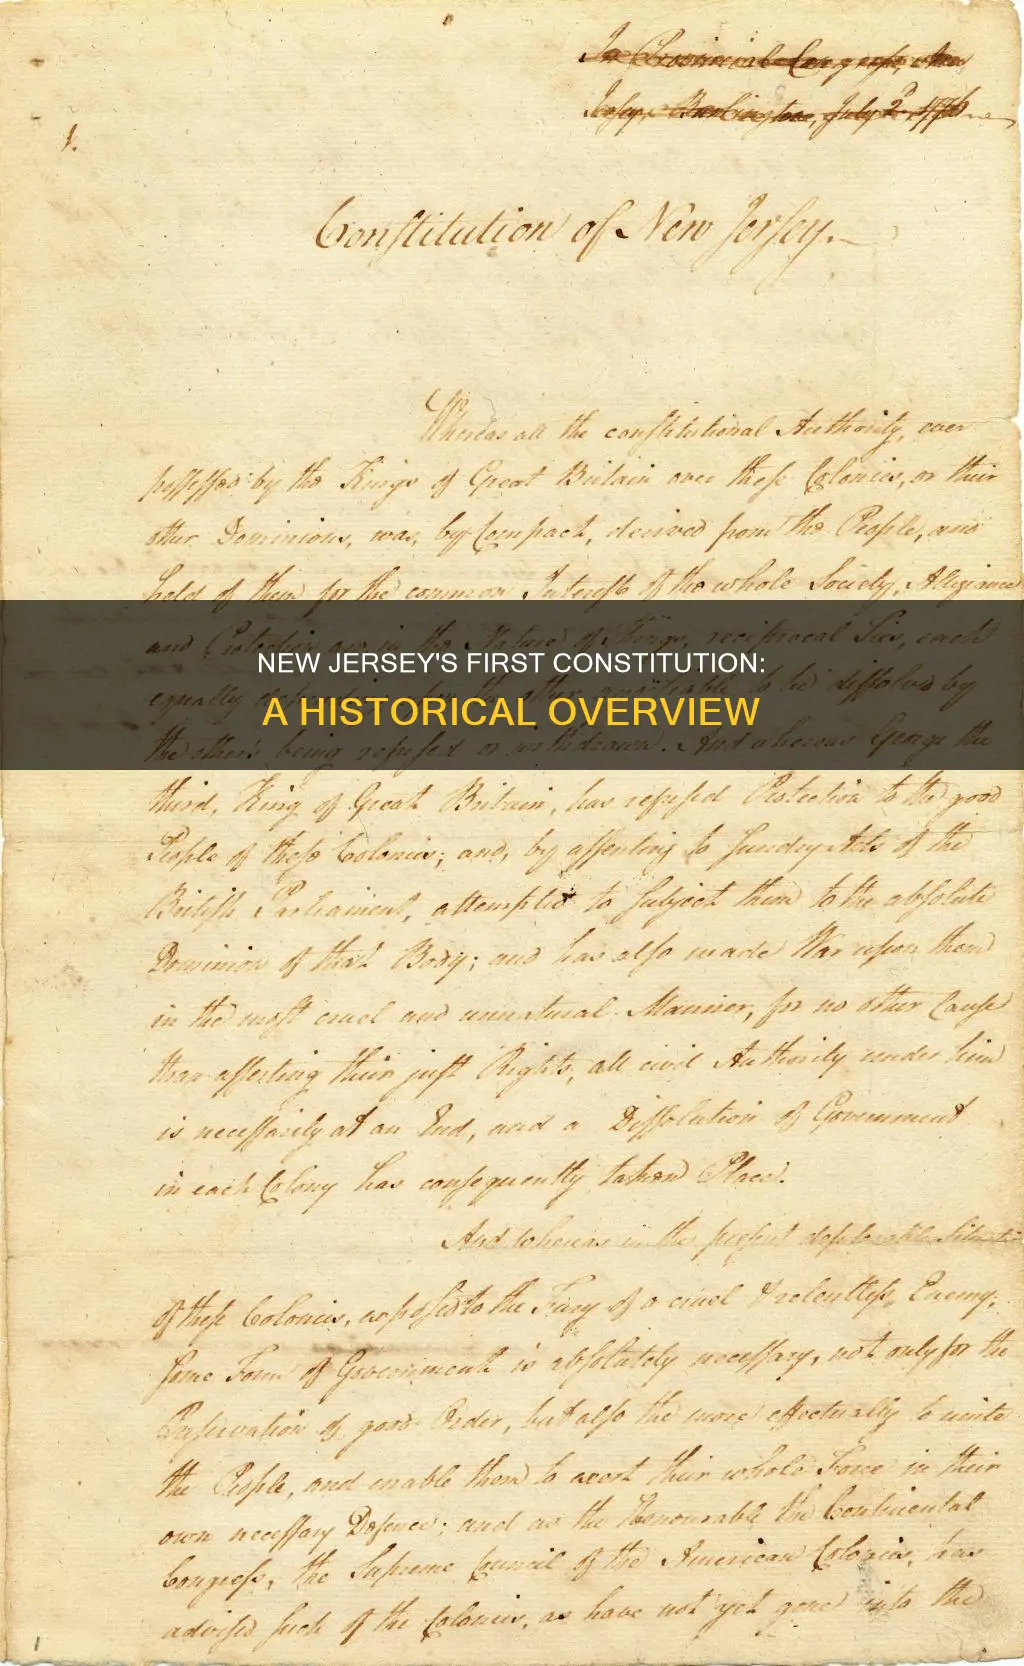 In Provincial Congress, New
Jersey, Burlington, July 2d. 1776
1.
Constitution of New Jersey.
Whereas all the constitutional Authority, ever
possessed by the Kings of Great Britain over these Colonies, or their
other Dominions, was, by Compact, derived from the People, and
held of them for the common Interest of the whole Society, Allegiance
and Protection are in the Nature of Things, reciprocal Ties, each
NEW JERSEY'S FIRST CONSTITUTION:
equally depending upon the other, liable to be dissolved by
A HISTORICAL OVERVIEW
the other's being refused or withdrawn. And whereas George the
third, King of Great Britain, has refused Protection to the good
People of these Colonies; and, by assenting to sundry Acts of the
British Parliament, attempted to subject them to the absolute
Dominion of that Body; and has also made War upon them
in the most cruel and unnatural Manner, for no other Cause
than asserting their just Rights, all civil Authority under him
is necessarily at an End, and a Dissolution of Government
in each Colony has consequently taken Place.
And whereas in the present deplorable Situatio
of these Colonies, exposed to the Fury of a cruel & relentless Enemy,
some Form of Government is absolutely necessary, not only for the
Preservation of good Order, but also the more effectually to unite
the People, and enable them to exert their whole Force in their
own necessary Defence; and as the Honourable the Continental
Congress, the Supreme Council of the American Colonies, has
advised such of the Colonies, as have not yet gone into the